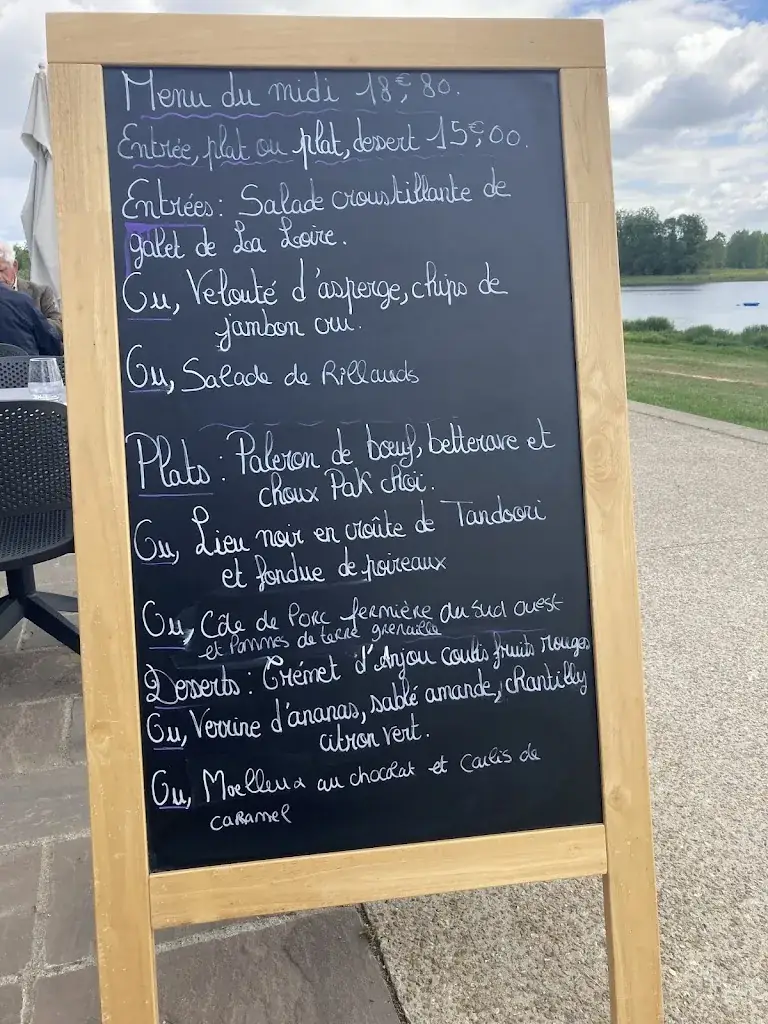 Menu du midi 18€,80.
Entrée, plat ou plat, dessert 15€,00.
Entrées : Salade croustillante de
galet de La Loire.
Ou, Velouté d'asperge, chips de
jambon cru.
Ou, Salade de Rillauds
Plats : Paleron de bœuf, betterave et
choux Pak choï.
Ou, Lieu noir en croûte de Tandoori
et fondue de poireaux
Ou, Côte de Porc fermière du sud ouest
et Pommes de terre grenaille
Desserts : Crémet d'Anjou coulis fruits rouges
Ou, Verrine d'ananas, sablé amande, chantilly
citron vert.
Ou, Moelleux au chocolat et Coulis de
caramel